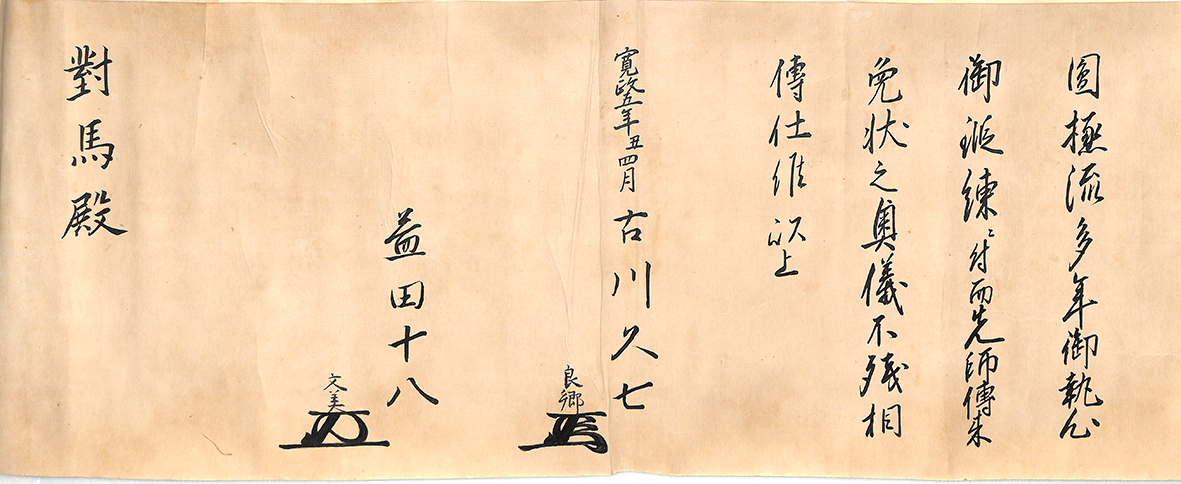 圓極流多年御執心
御鍛練ニ付而先師傳来
免状之奥儀不残相
傳仕維以上
寛政五年丑四月 古川久七
良郷
益田十八
文美
對馬殿